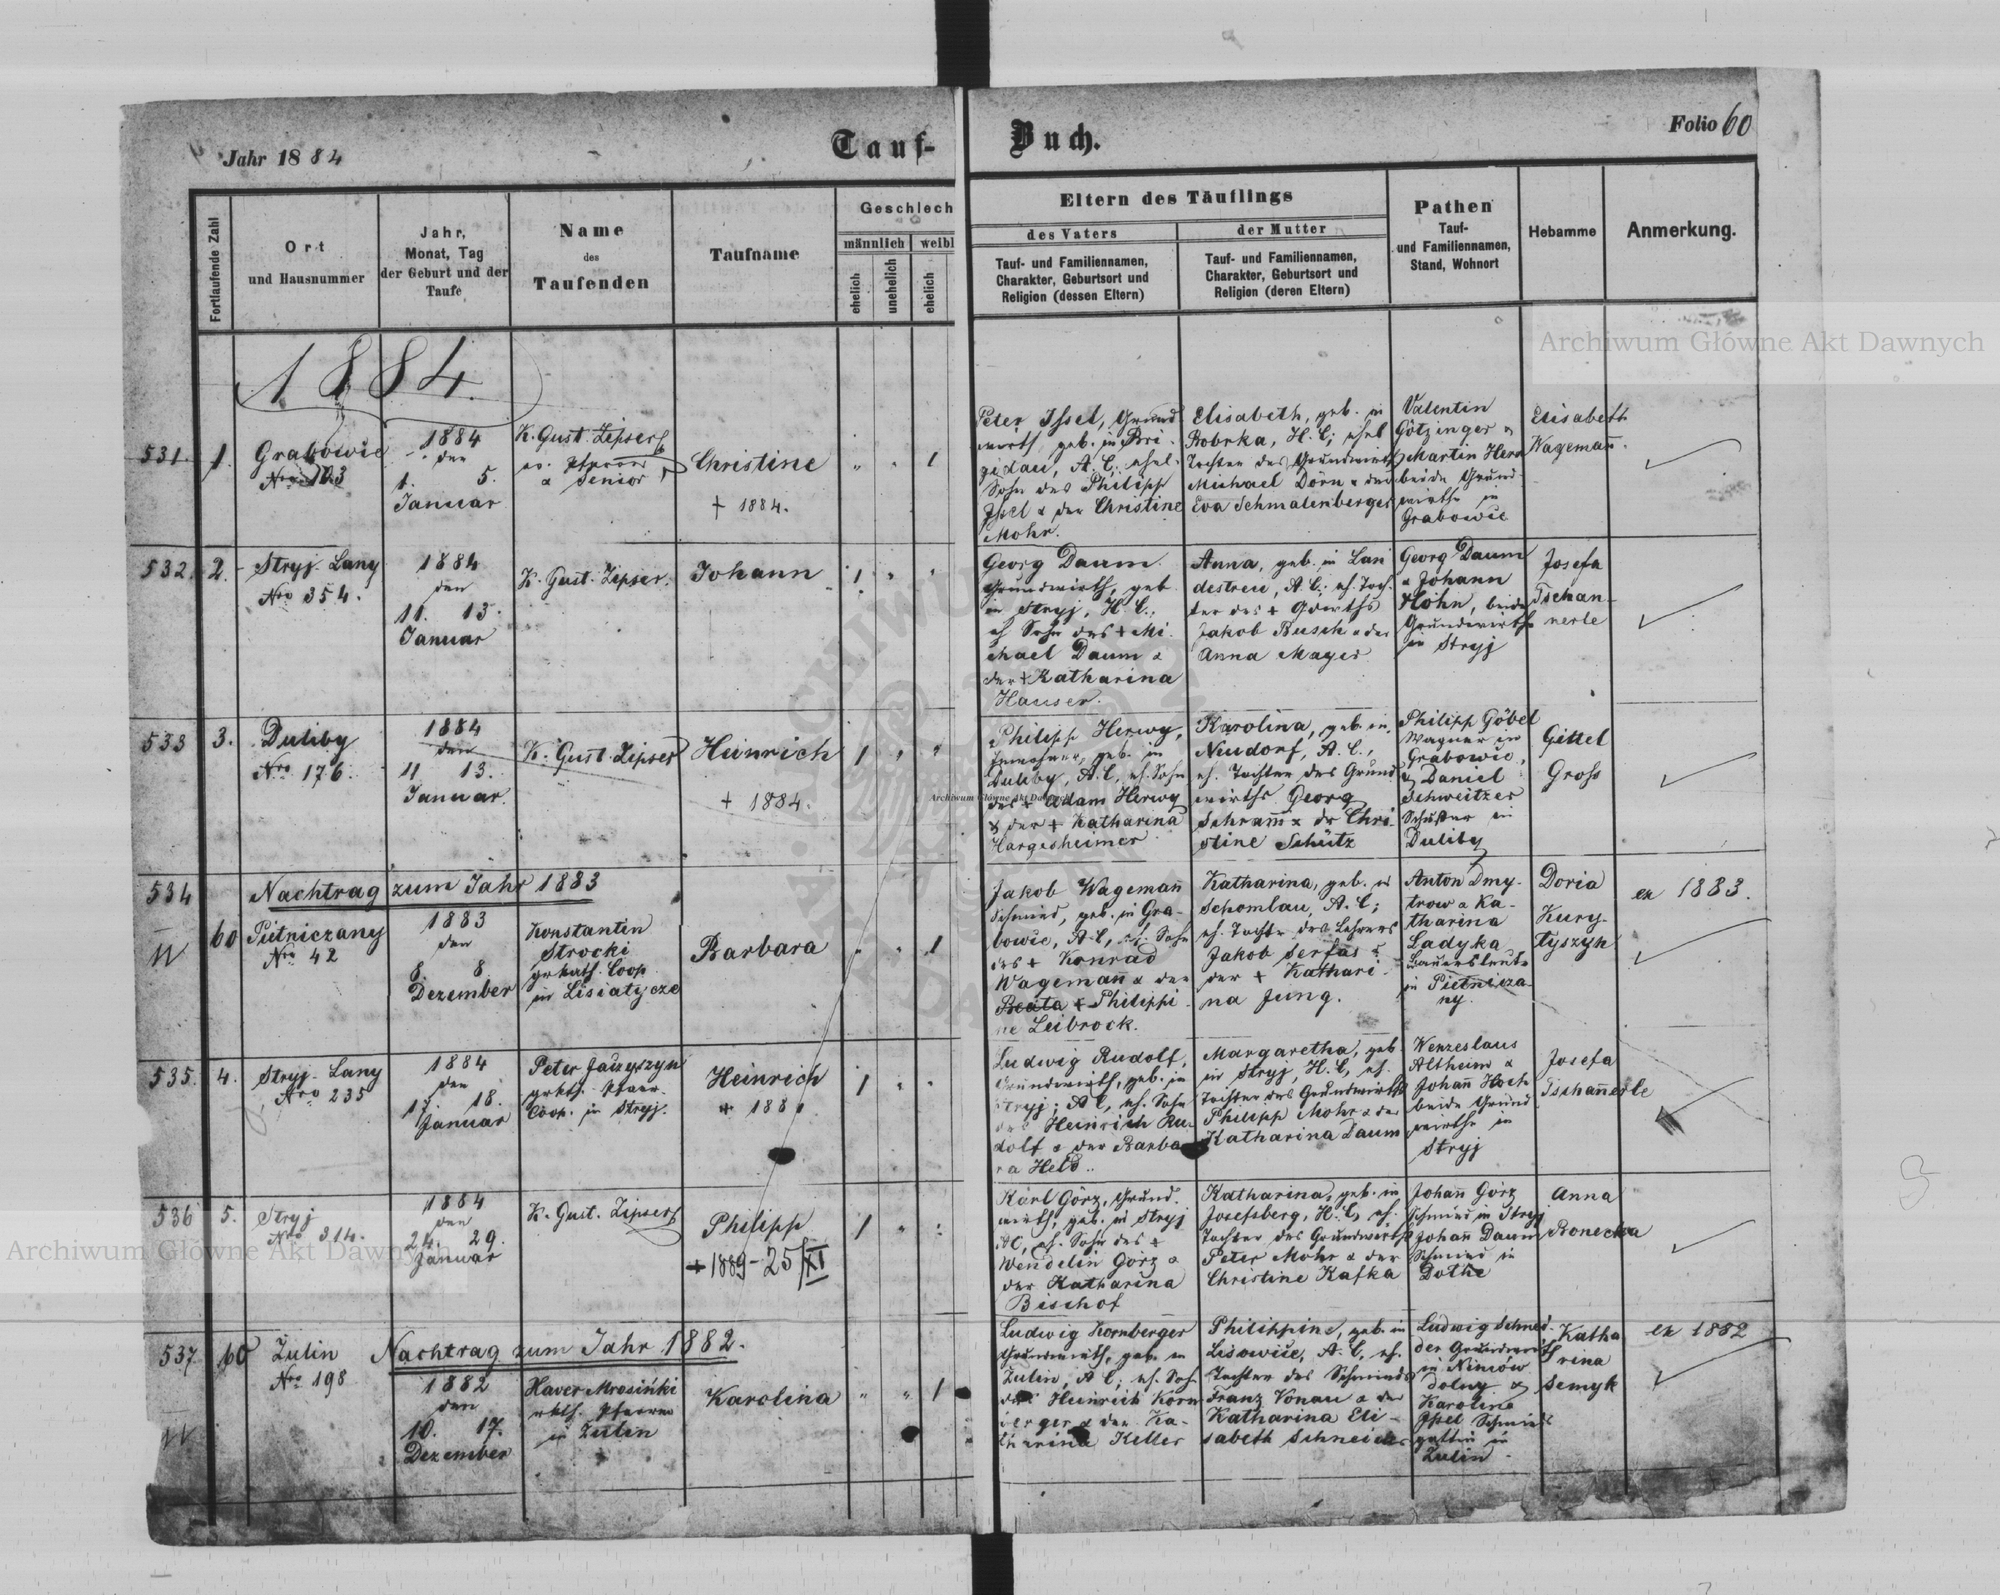 Jahr 1884
Tauf-
Buch.
Folio 60
Fortlaufende Zahl
Ort
und Hausnummer
Jahr,
Monat, Tag
der Geburt und der
Taufe
Name
des
Taufenden
Taufname
Geschlech
männlich
weibl
ehelich
unehelich
ehelich
Eltern des Täuflings
des Vaters
Tauf- und Familiennamen,
Charakter, Geburtsort und
Religion (dessen Eltern)
der Mutter
Tauf- und Familiennamen,
Charakter, Geburtsort und
Religion (deren Eltern)
Pathen
Tauf-
und Familiennamen,
Stand, Wohnort
Hebamme
Anmerkung.
1884.
531. 1.
Grabowie
Nro 103
1884
den
1. 5.
Januar
K. Gust. Zipser
ev. Pfarrer
& Senior
Christine
+ 1884.
" " 1
Peter Issel, Grund
wirth, geb. in Bri-
gidau, A. C.; ehel.
Sohn des Philipp
Issel & der Christine
Mohr.
Elisabeth, geb. in
Bobrka, H. C; ehel
Tochter des Grundwirth
Michael Dörn & der
Eva Schmalenberger
Valentin
Götzinger &
Martin Hern
beide Grund-
wirthe in
Grabowie
Elisabeth
Wagemañ.
532. 2.
Stryj-Lany
Nro 354.
1884
den
11. 13.
Januar
K. Gust. Zipser.
Johann
1 " "
Georg Daum
Grundwirth, geb
in Stryj, H. C.;
eh Sohn des + Mi-
chael Daum &
der + Katharina
Hauser.
Anna, geb. in Lan
destreu, A. C.; eh. Toch-
ter des + Gdwirths
Jakob Busch & der
Anna Mayer
Georg Daum
& Johann
Höhn, beide
Grundwirthe
in Stryj
Josefa
Tschan-
nerle
533 3.
Duliby
Nro 176.
1884
den
11 13.
Januar.
K. Gust. Zipser
Heinrich
+ 1884.
1 " "
Philipp Herwy,
Inwohner, geb. in
Duliby, A. C, eh. Sohn
des + Adam Herwy
& der + Katharina
Hargesheimer
Karolina, geb. in
Neudorf, A. C.,
eh. Tochter des Grund
wirths Georg
Schram̃ & dr Chri-
stine Schütz
Philipp Göbel
Wagner in
Grabowie,
& Daniel
Schweitzer
Schuster in
Duliby
Gittel
Gross
534
Nachtrag zum Jahr 1883
60
Pietniczany
Nro 42
1883
den
8. 8.
Dezember
Konstantin
Strocki
grkath. Coop.
in Lisiatycze
Barbara
" " 1
Jakob Wagemañ
Schmied, geb. in Gra-
bowie, A. C, eh. Sohn
des + Konrad
Wagemañ & der
Beata + Philippi-
ne Leibrock.
Katharina, geb. in
Schomlau, A. C;
eh. Tochter des Lehrers
Jakob Serfas &
der + Kathari-
na Jung.
Anton Dmy-
trow & Ka-
tharina
Ladyka
Bauersleute
in Pietnicza-
ny.
Doria
Kury-
tyszyn
ex 1883.
535. 4.
Stryj-Lany
Nro 235
1884
den
18.
Januar
Peter
grkth. Pfarr-
Coop. in Stryj.
Heinrich
1 " "
Ludwig Rudolf,
Grundwirth, geb. in
Stryj; A C, eh. Sohn
des Heinrich Ru-
dolf & der Barba-
ra Held.
Margaretha, geb
in Stryj, H. C, eh.
Tochter des Grundwirths
Philipp Mohr & der
Katharina Daum
Wenzeslaus
Altheim &
Johañ Hoch
beide Grund
wirthe in
Stryj
Josefa
Tschañerle
536 5.
Stryj
Nro 314.
1884
den
24. 29.
Januar
K. Gust. Zipser
Philipp
+ 1889-25/XI
1 " "
Karl Görz, Grund-
wirth, geb. in Stryj
AC, eh. Sohn des +
Wendelin Görz &
der Katharina
Bischof
Katharina, geb. in
Josefsberg, H. C, eh.
Tochter des Grundwirths
Peter Mohr & der
Christine Kafka
Johañ Görz
Schmied in Stryj
Johañ Daum
Schmied in
Anna
537 60
Zulin
Nro 198
Nachtrag zum Jahr 1882.
1882
den
10. 17.
Dezember
Xaver Mrosiński
rkth. Pfarrer
in Zulin
Karolina
" " 1
Ludwig Kornberger
Grundwirth, geb. in
Zulin, A C; eh. Sohn
des Heinrich Korn
berger & der Ka-
tharina Keller
Philippine, geb. in
Lisowice, A. C, eh.
Tochter des Schmieds
Franz Vonau & der
Katharina Eli-
sabeth Schneider
Ludwig Schnei-
der Grundwirth
in Niniów
dolny &
Karoline
Issel Schmieds
gattin in
Zulin.
Katha
rina
Semyk
ex 1882
Archiwum Główne Akt Dawnych
Archiwum Główne Akt Dawnych
Archiwum Główne Akt Dawnych